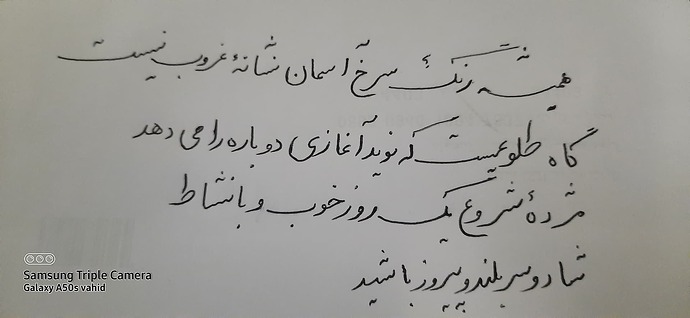 همیشه رنگ سرخ آسمان نشانهٔ غروب نیست
گاه طلوعیست که نوید آغازی دوباره را می دهد
مژدهٔ شروع یک روز خوب و بانشاط
شاد و سربلند و پیروز باشید
Samsung Triple Camera
Galaxy A50s vahid